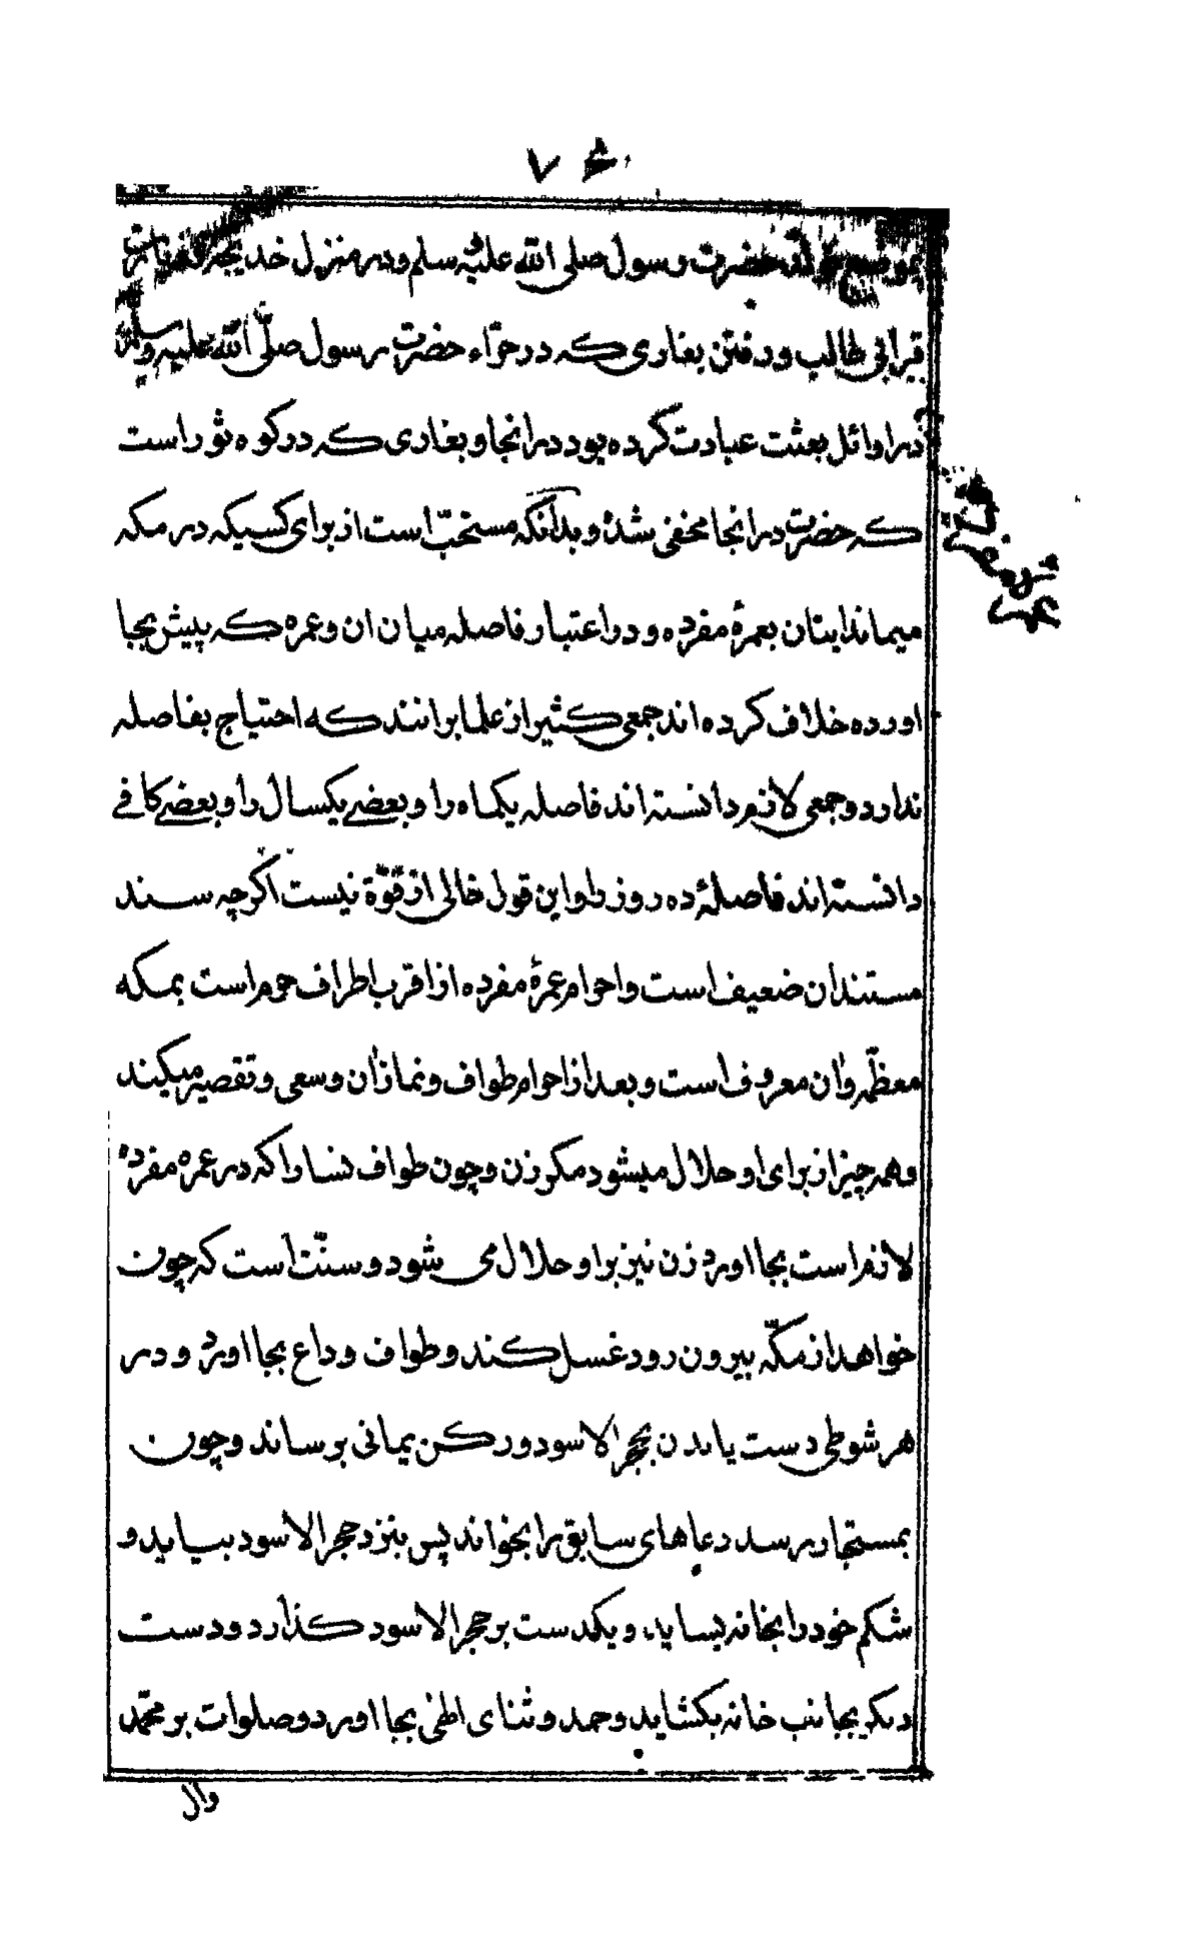 ۷
حضرت رسول صلی الله علیه سلم و در منزل خدیجه و زیارت
قبر ابی طالب و رفتن بغاری که در حرّاء حضرت رسول صلّی الله علیه وسلم
در اوائل بعثت عبادت کرده بود در انجا و بغاری که در کوه ثور است
که حضرت در انجا مخفی شدۀ و بدانکه مستحبّ است از برای کسیکه در مکه
میماند ایتان بعمرۀ مفرده و در اعتبار فاصله میان ان و عمره که پیش بجا
اورده خلاف کرده اند جمعی کثیر از علما برانند که احتیاج بفاصله
ندارد و جمعی لازم دانسته اند فاصله یکماه را و بعضے یکسال را و بعضے کافے
دانسته اند فاصلۀ ده روز را و این قول خالی از قوّة نیست اکرچه سند
مستند ان ضعیف است و احرام عمرۀ مفرده از اقرب اطراف حرم است بمکه
معظّمه و ان معروف است و بعد از احرام طواف و نماز ان و سعی و تقصیر میکند
و همه چیز از برای او حلال میشود مکر زن و چون طواف نسا را که در عمره مفردۀ
لازم است بجا اورد زن نیز بر او حلال می شود و سنّت است که چون
خواهد از مکّه بیرون رود غسل کند و طواف وداع بجا اورد و در
هر شوطی دست یا بدن بحجر الاسود و رکن یمانی برساند و چون
بمستجار برسد دعاهای سابق را بخواند پس بنزد حجر الاسود بیاید و
شکم خود را بخانه بساید و یکدست بر حجر الاسود کذارد و دست
دیکر بجانب خانه بکشاید و حمد و ثنای الهٰی بجا اورد و صلوات بر محمّد
وال